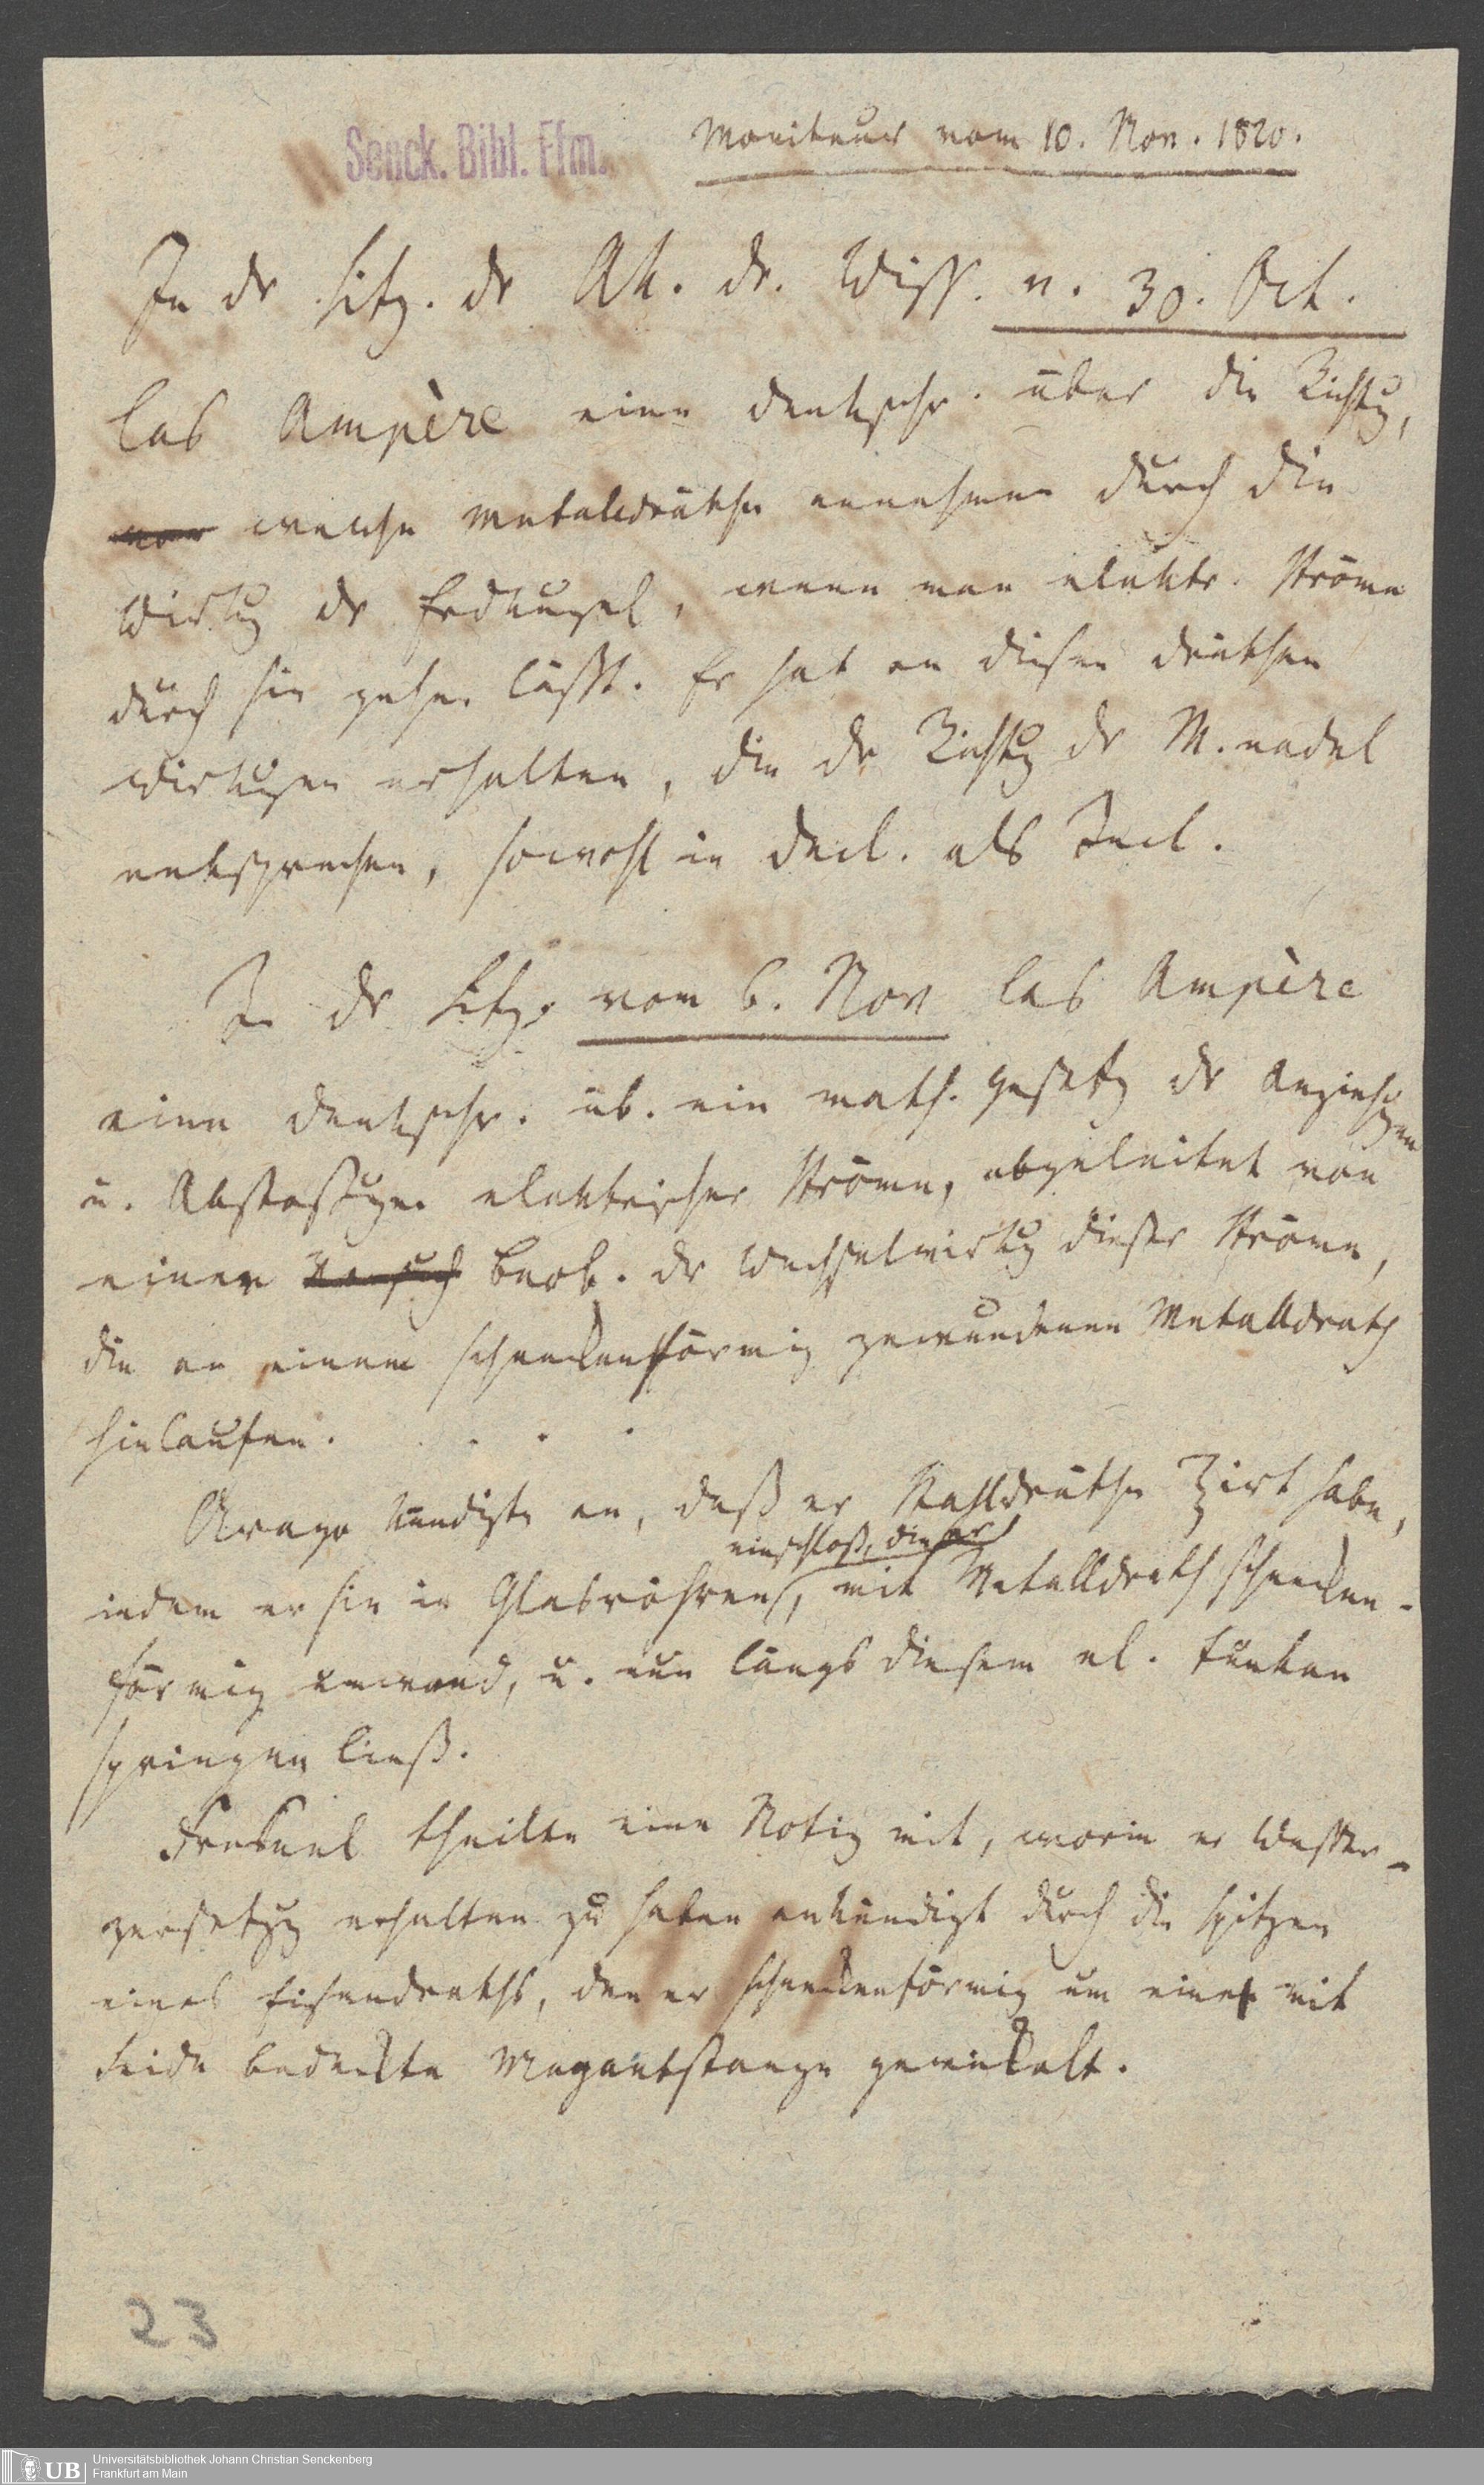 Senck. Bibl. Ffm.
Moniteur vom 10. Nov. 1820.
In dr Sitz. dr Ak. dr. Wiss. v. 30. Oct.
las Ampère eine Denkschr. über die Richtg,
welche Metalldräthe annehmen durch die
Wirkg dr Erdkugel, wenn man elektr. Ströme
durch sie gehen lässt. Er hat an diesen Dräthen
Wirkugen erhalten, die dr Richtg dr M.nadel
entsprechen, sowohl in Decl. als Incl.
In dr Sitz. vom 6. Nov las Ampère
eine Denkschr. üb. ein math. Gesetz dr Anziehgen
u. Abstoßugen elektrischer Ströme, abgeleitet von
einer Versuch Beob. dr Wechselwirkg dieser Ströme,
die an einem schneckenförmig gewundenen Metalldrath
hinlaufen. . . . .
Arago kündigte an, daß er Stahldräthe habe,
einschloß, die er
indem er sie in Glasröhren, mit Metalldrath schnecken-
förmig umwand, u. nun längs diesem el. Funken
springen ließ.
Fresnel theilte eine Notiz mit, worin er Wasser-
zersetzg erhalten zu haben ankündigt durch die Spitzen
eines Eisendraths, den er schneckenförmig um eine mit
Seide bedeckte Magnetstange gewickelt.
23
UB Universitätsbibliothek Johann Christian Senckenberg
Frankfurt am Main